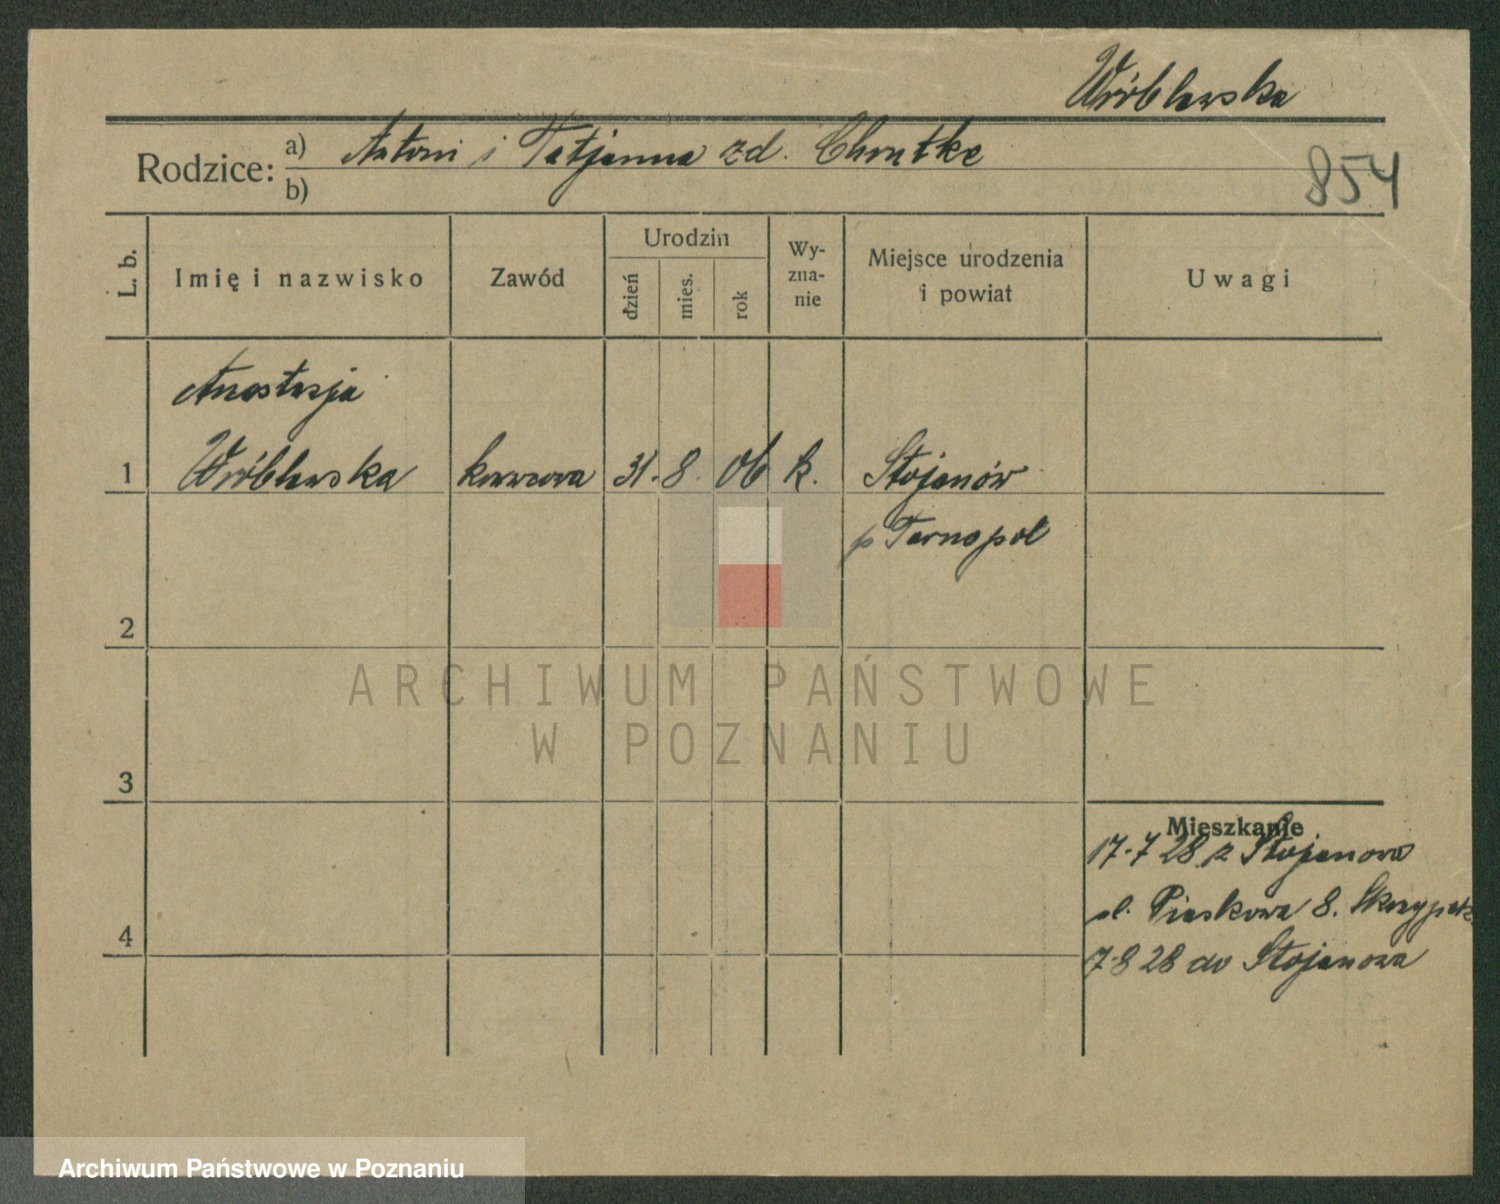 Wróblewska
Rodzice: a) Antoni i Tatjanna zd.
b)
854
L. b.
Imię i nazwisko
Zawód
Urodzin
dzień
mies.
rok
Wy-
zna-
nie
Miejsce urodzenia
i powiat
Uwagi
Anastazja
1 Wróblewska krawcowa 31. 8. 06 k. Stojanów
p Tarnopol
2
ARCHIWUM PAŃSTWOWE
W POZNANIU
3
Mieszkanie
17.7 28 z Stojanowa
ul. Piaskowa 8.
4
7.8 28 do Stojanowa
Archiwum Państwowe w Poznaniu